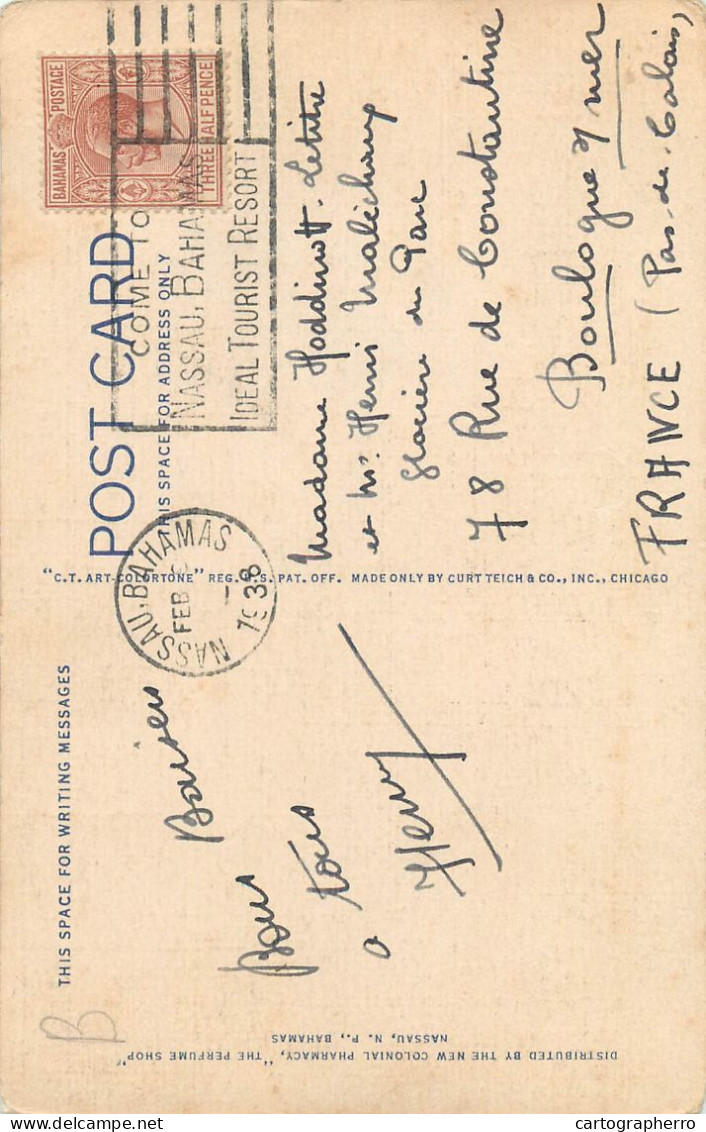 THIS SPACE FOR WRITING MESSAGES
POST CARD
THIS SPACE FOR ADDRESS ONLY
BAHAMAS POSTAGE
THREE HALF PENCE
COME TO
NASSAU, BAHAMAS
IDEAL TOURIST RESORT
NASSAU, BAHAMAS
FEB
1938
B
Bons Baisers
à tous
Henry
Madame Hoddinott-Letitre
et Mr. Henri Maléchamp
Glacière du Parc
78 Rue de Constantine
Boulogne s/ mer
FRANCE (Pas-de-Calais)
"C.T. ART-COLORTONE" REG. U.S. PAT. OFF. MADE ONLY BY CURT TEICH & CO., INC., CHICAGO
DISTRIBUTED BY THE NEW COLONIAL PHARMACY, "THE PERFUME SHOP"
NASSAU, N. P., BAHAMAS
cartographerro